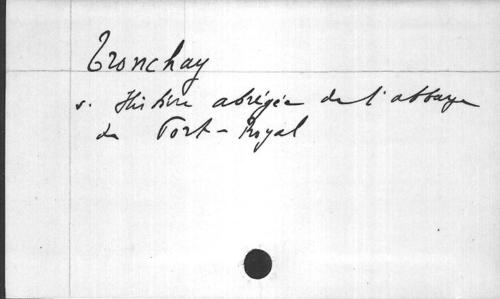 Tronchay
s. Histoire abrégée de l'abbaye
de Port-Royal